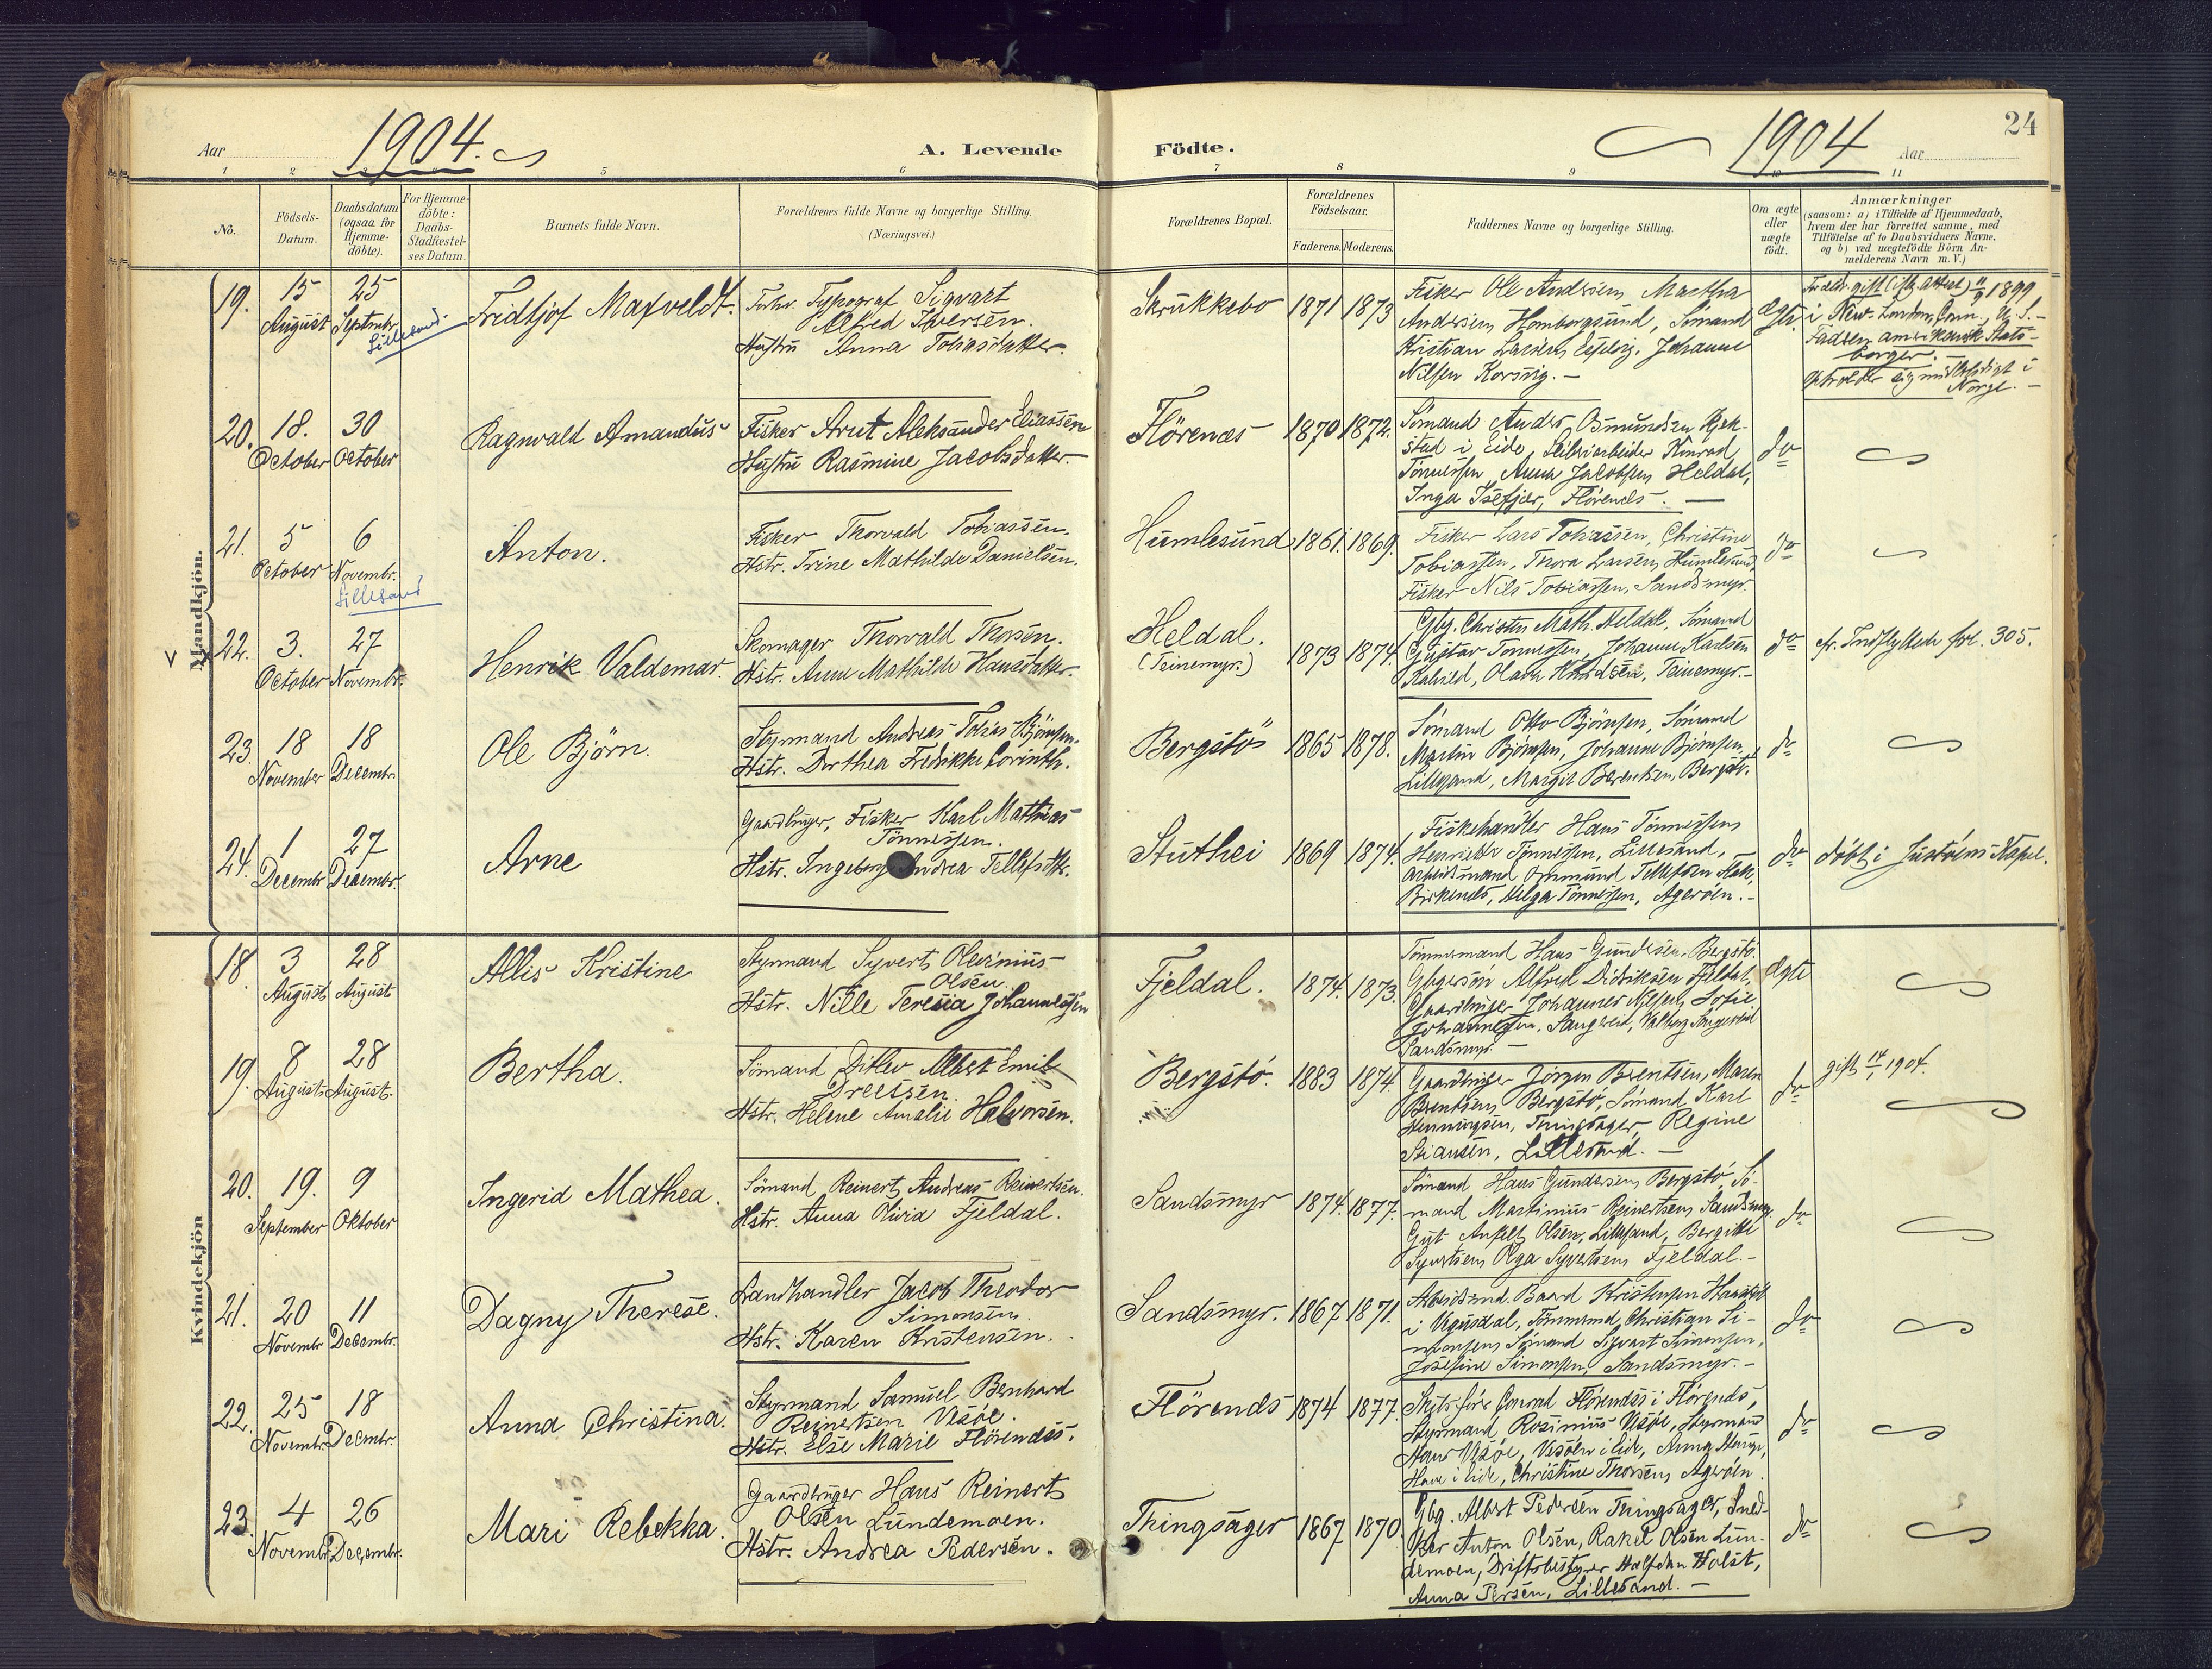 24
Aar 1904.
A. Levende
Födte.
1904 Aar
1 2 5 6 7 8 9 10 11
No.
Födsels-Datum.
Daabsdatum (ogsaa for Hjemme-döbte).
For Hjemme-döbte: Daabs-Stadfæstel-ses Datum.
Barnets fulde Navn.
Forældrenes fulde Navne og borgerlige Stilling.
(Næringsvei.)
Forældrenes Bopæl.
Forældrenes Födselsaar.
Faderens. Moderens.
Faddernes Navne og borgerlige Stilling.
Om ægte eller uægte födt.
Anmærkninger
(saasom: a) i Tilfælde af Hjemmedaab,
hvem der har forrettet samme, med
Tilföielse af to Daabsvidners Navne.
og b) ved uægtefödte Börn An-
melderens Navn m. V.)
Mandkjön.
19. 15 August 25 Septmbr. Lillesand.
Fridtjof Maxveldt.
Typograf Sigvart
Alfred Iversen.
Hustru Anna Tobiasdatter.
Skrukkebo 1871 1873
Fisker Ole Andersen, Martha
Andersen, Homborgsund, Sömand
Kristian Larsen, Johanne
Nilsen Korsvig. -
gift 1899
i New-London, Conn., U. S. -
Faderen amerikansk Stats-
borger. -
Opholder sig midlertidigt i
Norge. -
20. 18. October 30 October
Ragnvald Amandus
Fisker Arnt Aleksander Eliassen
Hustru Rasmine Jacobsdatter.
Flörenæs 1870 1872.
Sömand Anders Osmundsen
i Eide, Konrad
Tönnessen Anna Jacobsen, Heldal,
Inga Isefjær, Flörenes. -
do
21. 5 October 6 Novembr. Lillesand
Anton.
Fisker Thorvald Tobiassen.
Hstr. Trine Mathilde Danielsen.
Humlesund 1861. 1869.
Fisker Lars Tobiassen, Christine
Tobiassen, Thora Larsen, Humlesund,
Fisker Nils Tobiassen, Sandsmyr.
do
22. 3. October 27 Novembr.
Henrik Valdemar.
Skomager Thorvald Thorsen.
Hstr. Anne Mathilde Hansdatter.
Heldal.
(Teinemyr.)
1873 1874.
Gbg. Christen Math. Heldal, Sömand
Gustav Tönnessen, Johanne Karlsen
Kalvild, Olava Knudsen, Teinemyr.-
do
fol. 305.
23. 18 November 18 Decembr.
Ole Björn.
Styrmand Andreas Tobias Björnsen.
Hstr. Dorthea Fredrikke Corinth.
Bergstö 1865 1878.
Sömand Otto Björnsen, Sömand
Martin Björnsen, Johanne Björnsen,
Lillesand, Margit Berentsen, Bergstö.
do
24. 1 Decembr. 27 Decembr.
Arne
Gaardbruger, Fisker Karl Mathias
Tönnessen.
Hstr. Ingeborg Andrea Tellefsdtr.
Stuthei 1869 1874.
Fiskehandler Hans Tönnessen,
Henriette Tönnessen, Lillesand,
Arbeidsmand Osmund Tellefsen
Birkenes, Helga Tönnessen, Ageröen.-
do
döbt i Justöens Kapel.
Kvindekjön
18. 3 August 28 August
Allis Kristine
Styrmand Syvert Olevinius
Olsen.
Hstr. Nille Teresia Johannessen
Fjeldal. 1874. 1873.
Tömmermand Hans Gundersen, Bergstö.
Gbgersön Alfred Didriksen Fjeldal,
Gaardbruger Johannes Nilsen, Sofie
Johannessen, Sangereid, Valborg Sangereid
Sandsmyr. -
Ægte
19. 8 August 28 August.
Bertha.
Sömand Ditlev Albert Emil
Dreesen.
Hstr. Helene Amalie Halvorsen.
Bergstö. 1883 1874
Gaardbruger Jörgen Berntsen, Maren
Berntsen, Bergstö, Sömand Karl
Henningsen, Thingsager, Regine
Stiansen, Lillesand. -
do
gift 1904.
20. 19. September 9 Oktober
Ingerid Mathea.
Sömand Reinert Andreas Reinertsen.
Hstr. Anna Olivia Fjeldal.
Sandsmyr 1874. 1877.
Sömand Hans Gundersen, Bergstö, Sö-
mand Martinius Reinertsen, Sandsmyr
Olsen, Lillesand, Bergitte
Syvertsen, Olga Syvertsen, Fjeldal.-
do
21. 20 Novembr 11 Decembr.
Dagny Therese.
Landhandler Jacob Theodor
Simonsen.
Hstr. Karen Kristensen.
Sandsmyr. 1867 1871.
Arbeidsmd. Baard Kristensen
i Vegusdal, Tömmermd. Christian Si-
monsen, Sömand Sigvart Simonsen,
Josefine Simonsen, Sandsmyr.-
do
22. 25 Novembr. 18 Decmbr.
Anna Christina.
Styrmand Samuel Bernhard
Reinertsen Vesöe.
Hstr. Else Marie Flörendes.
Flörends 1874 1877.
Skibsförer Conrad Flörenæss i Flörends,
Styrmand Rosinius Vesöe, Styrmand
Hans Vesöe, Vesöen i Eide, Anna
i Eide, Christine Thorsen, Ageröen.
do
23. 4 Novembr. 26 Decembr.
Mari Rebekka.
Gaardbruger Hans Reinert
Olsen Lundemoen.
Hstr. Andrea Pedersen.
Thingsager 1867 1870.
Gbg. Albert Pedersen Thingsager, Sned-
ker Anton Olsen, Rakel Olsen Lun-
demoen, Driftsbestyrer Halfdan Holst,
Anna Persen, Lillesand. -
do